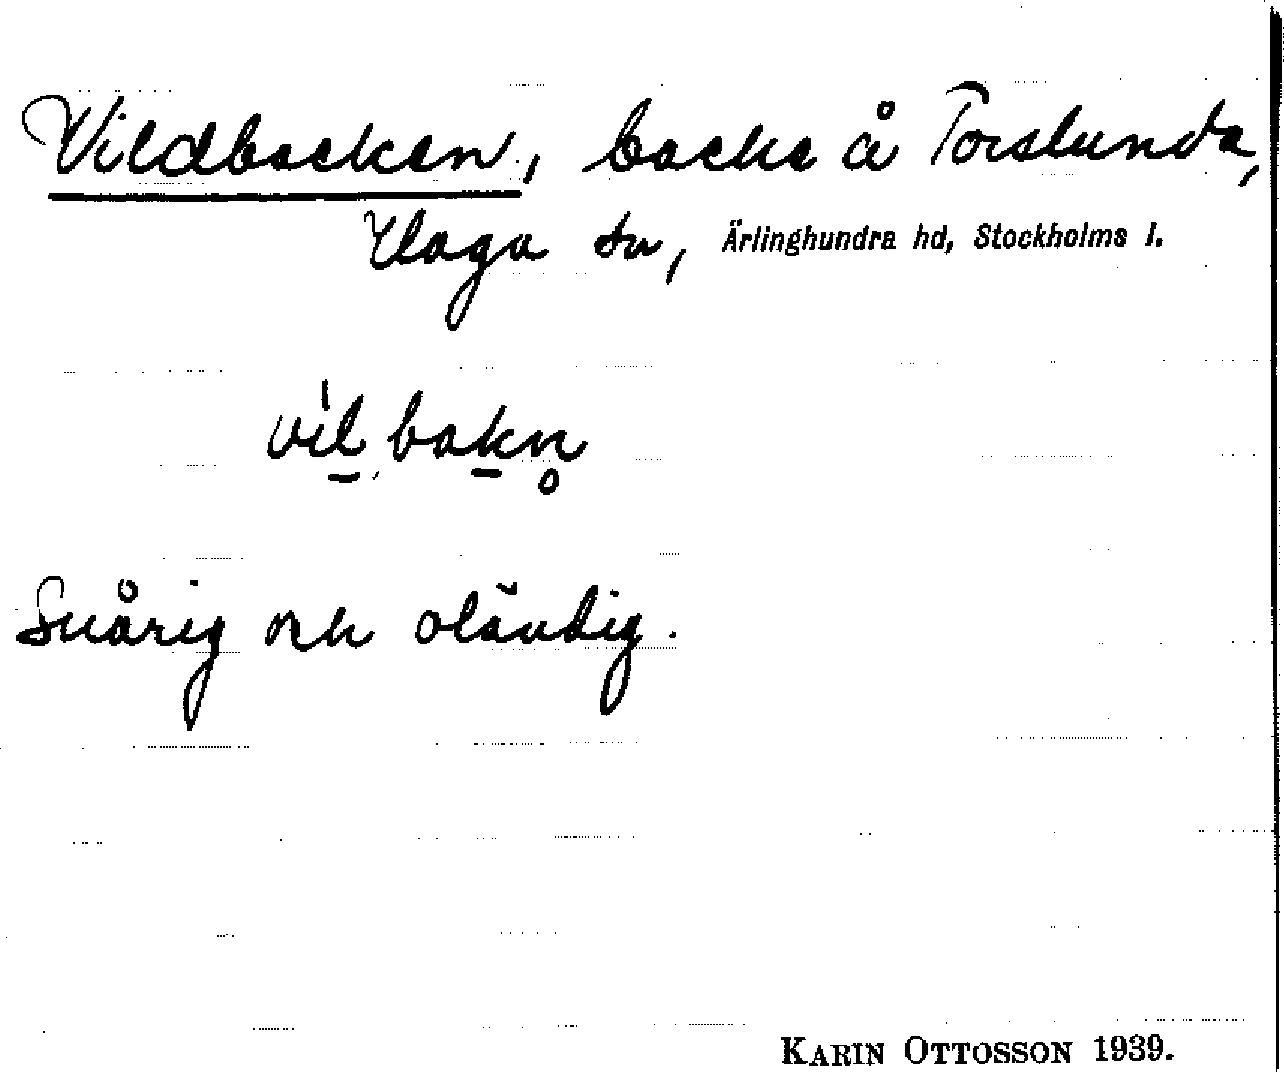 Vildbacken, backe å Torslunda,
Haga sn, Ärlinghundra hd, Stockholms l.
vil bakn
Snårig och oländig.
KARIN OTTOSSON 1939.